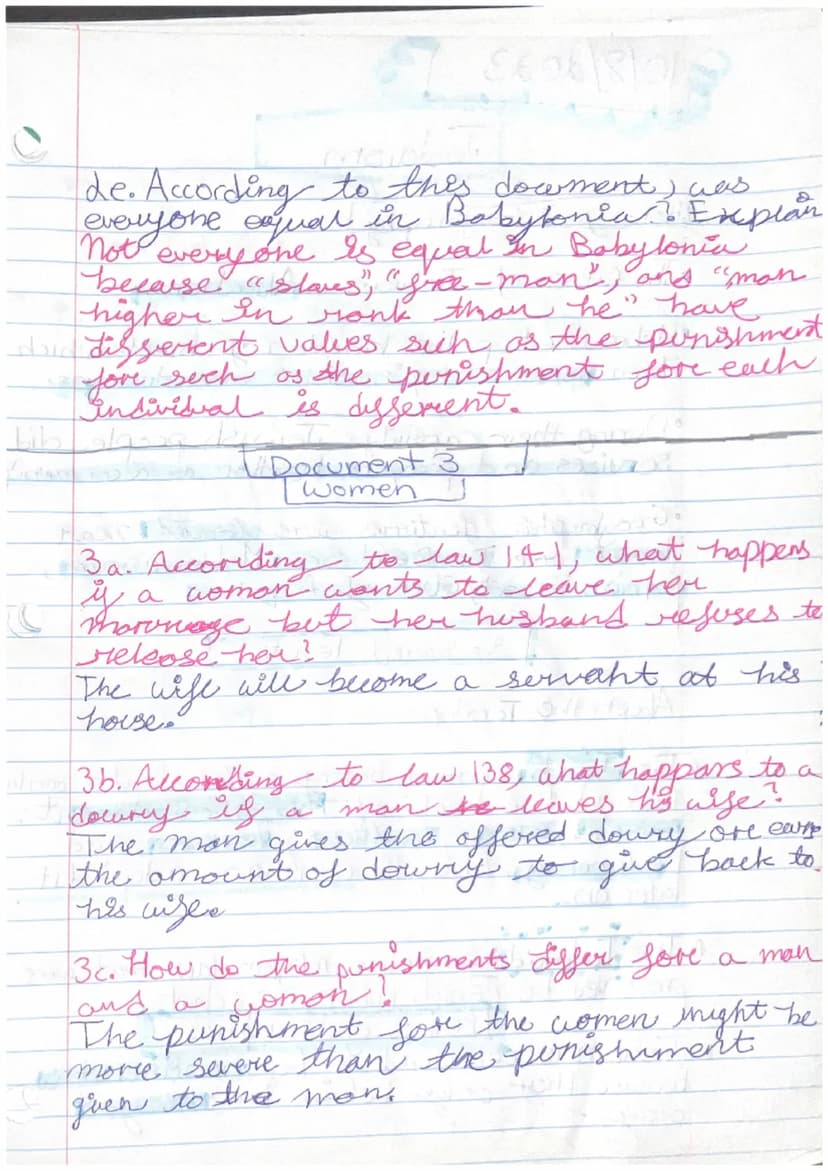 2e. According to this document, was
everyone equal in Babylonia? Explain
Not everyone is equal in Babylonia
because "slaves", "free-man", and "man
higher in rank than he" have
different values such as the punishment
for such as the punishment for each
individual is different.
Document 3
Women
3a. According to law 141, what happens
if a woman wants to leave her
marriage but her husband refuses to
release her?
The wife will become a servant at his
house.
3b. According to law 138, what happans to a
dowry if a man leaves his wife?
The man gives the offered dowry or earn
the amount of dowry to give back to
his wife.
3c. How do the punishments differ for a man
and a woman?
The punishment for the women might be
more severe than the punishment
given to the man.